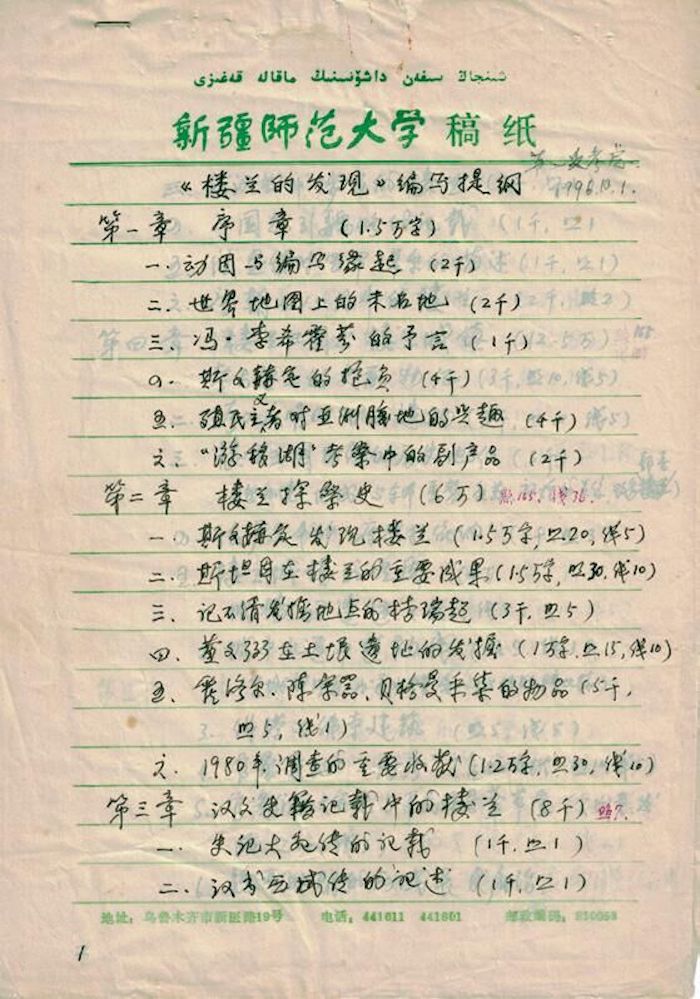 شىنجاڭ سىفەن داشۆسىنىڭ ماقالە قەغىزى
新疆师范大学 稿纸
《楼兰的发现》编写提纲 1996.10.1.
第一章 序章 (1.5万字)
一. 动因与编写缘起 (2千)
二. 世界地图上的未名地 (2千)
三. 冯·李希霍芬的予言 (1千)
四. 斯文赫定的抱负 (4千)
五. 殖民主义者对亚洲腹地的兴趣 (4千)
六. "游移湖"考察中的副产品 (2千)
第二章 楼兰探察史 (6万)
一. 斯文赫定发现楼兰 (1.5万字, 照20, 线5)
二. 斯坦因在楼兰的主要成果 (1.5万字, 照30, 线10)
三. 记不清发掘地点的桔瑞超 (3千, 照5)
四. 黄文弼在土垠遗址的发掘 (1万字, 照15, 线10)
五. 霍涅尔、陈宗器、贝格曼采集的物品 (5千,
照5, 线1)
六. 1980年调查的重要收获 (1.2万字, 照30, 线10)
第三章 汉文史籍记载中的楼兰 (8千) 照7.
一. 史记大宛传的记载 (1千, 照1)
二. 汉书西域传的记述 (1千, 照1)
地址: 乌鲁木齐市新医路19号 电话: 441011 441601 邮政编码:
1